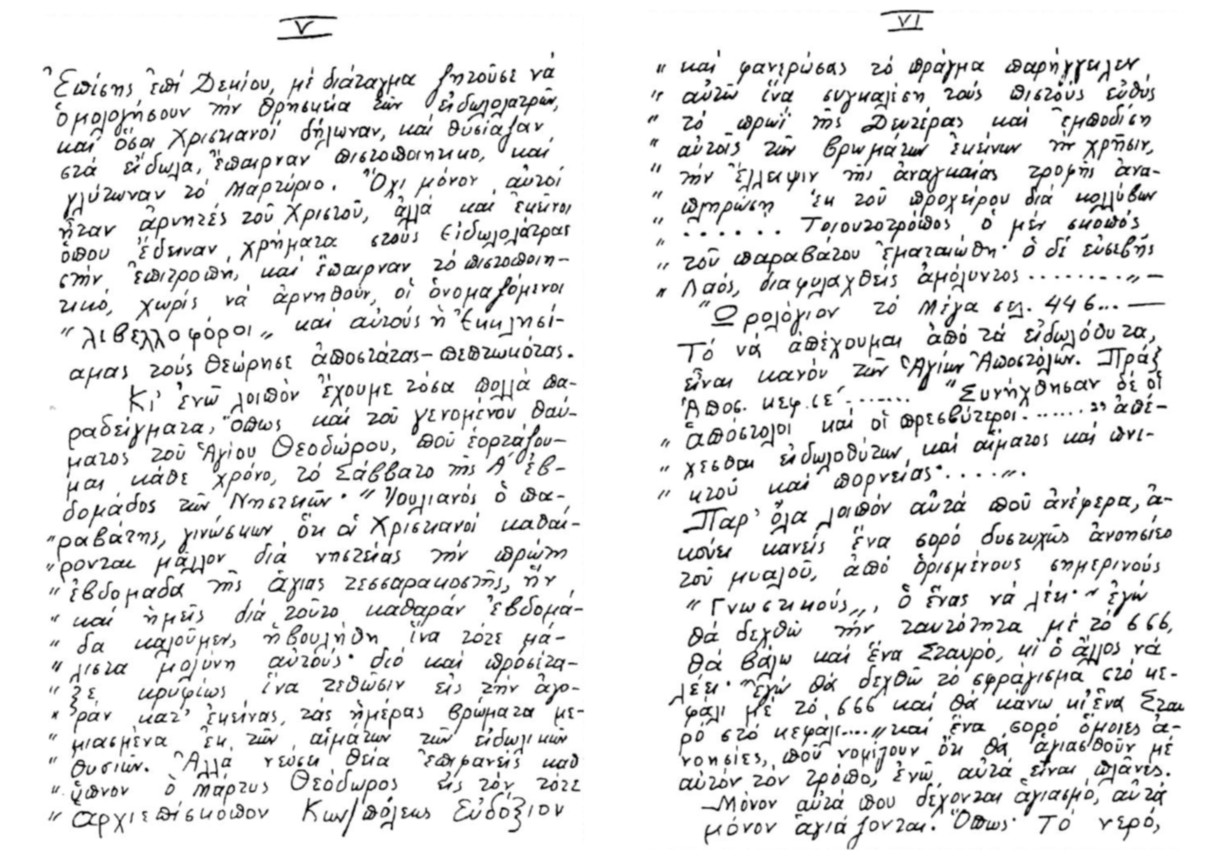 V
Ἐπίσης ἐπί Δεκίου, μέ διάταγμα ζητοῦσε νά
ὁμολογήσουν τήν θρησκεία τῶν εἰδωλολατρῶν,
καί ὅσοι Χριστιανοί δήλωναν, καί θυσίαζαν
στά εἴδωλα, ἔπαιρναν πιστοποιητικό, καί
γλύτωναν τό Μαρτύριο. Ὄχι μόνον αὐτοί
ἦταν ἀρνητές τοῦ Χριστοῦ, ἀλλά καί ἐκεῖνοι
ὁπου ἔδειναν χρήματα στούς εἰδωλολάτρας
στήν ἐπιτροπή, καί ἔπαιρναν τό πιστοποιη-
τικό, χωρίς νά ἀρνηθοῦν, οἱ ὀνομαζόμενοι
"λιβελλοφόροι" καί αὐτούς ἡ Ἐκκλησί-
αμας τούς θεώρησε ἀποστάτας-πεπτωκότας.
Κι' ἐνῶ λοιπόν ἔχουμε τόσα πολλά πα-
ραδείγματα, ὅπως καί τοῦ γενομένου θαύ-
ματος τοῦ Ἁγίου Θεοδώρου, πού ἑορτάζου-
μαι κάθε χρόνο, τό Σάββατο τῆς Α' ἑβ-
δομάδος τῶν Νηστειῶν· "Ἰουλιανός ὁ πα-
"ραβάτης, γινώσκων ὅτι οἱ Χριστιανοί καθαί-
"ρονται μᾶλλον διά νηστείας τήν πρώτη
"ἑβδομάδα τῆς ἁγίας τεσσαρακοστῆς, ἥν
"καί ἡμεῖς διά τοῦτο καθαράν ἑβδομά-
"δα καλοῦμεν, ἠβουλήθη ἵνα τότε μά-
"λιστα μολύνη αὐτούς· διό καί προσέτα-
"ξε κρυφίως ἵνα τεθῶσιν εἰς τήν ἀγο-
"ράν κατ' ἐκείνας, τάς ἡμέρας βρώματα με-
"μιασμένα ἐκ τῶν αἱμάτων τῶν εἰδωλικῶν
"θυσιῶν. Ἀλλά νεύσει θεία ἐπιφανείς καθ
"ὕπνον ὁ Μάρτυς Θεόδωρος εἰς τόν τότε
"ἀρχιεπίσκοπον Κων/πόλεως Εὐδόξιον
VI
"καί φανερώσας τό πρᾶγμα παρήγγειλεν
"αὐτῶ ἵνα συγκαλέση τούς πιστούς εὐθύς
"τό πρωΐ τῆς Δευτέρας καί ἐμποδίση
"αὐτοῖς τῶν βρωμάτων ἐκείνων τήν χρῆσιν,
"τήν ἔλλειψιν τῆς ἀναγκαίας τροφῆς ἀνα-
"πληρώση ἐκ τοῦ προχείρου διά κολλύβων
"....... Τοιουτοτρόπος ὁ μέν σκοπός
"τοῦ παραβάτου ἐματαιώθη· ὁ δέ εὐσεβής
"Λαός, διαφυλαχθείς ἀμόλυντος ........."-
"Ὡρολόγιον τό Μέγα σελ. 446...—
Τό νά ἀπέχουμαι ἀπό τά εἰδωλόθυτα,
εἶναι κανόν τῶν Ἁγίων Ἀποστόλων. Πράξ
Ἀποσ. κεφ. ιε' ....... "Συνήχθησαν δέ οἱ
"ἀπόστολοι καί οἱ πρεσβύτεροι.......,, ἀπέ-
"χεσθαι εἰδωλοθύτων καί αἵματος καί πνι-
"κτοῦ καί πορνείας.....".
Παρ' ὅλα λοιπόν αὐτά πού ἀνέφερα, ἀ-
κούει κανείς ἕνα σορό δυστυχῶς ἀνοησίες
τοῦ μυαλοῦ, ἀπό ὁρισμένους σημερινούς
"Γνωστικούς", ὁ ἕνας νά λέει· "ἐγώ
θά δεχθῶ τήν ταυτότητα μέ τό 666,
θά βάλω καί ἕνα Σταυρό, κι ὁ ἄλλος νά
λέει· "ἐγώ θά δεχθῶ τό σφράγισμα στό κε-
φάλι μέ τό 666 καί θά κάνω κι ἕνα Σταυ
ρό στό κεφάλι...." καί ἕνα σορό ὅμοιες ἀ-
νοησίες, πού νομίζουν ὅτι θά ἁγιασθοῦν μέ
αὐτόν τόν τρόπο, ἐνῶ αὐτά εἶναι πλάνες.
Μόνον αὐτά που δέχονται ἁγιασμό, αὐτά
μόνον ἁγιάζονται. Ὅπως· Τό νερό,